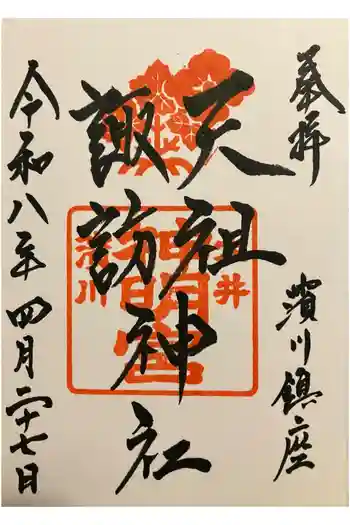 奉拝
濱川鎮座
天祖
諏訪
神社
令和八年四月二十七日
井
神明宮
川